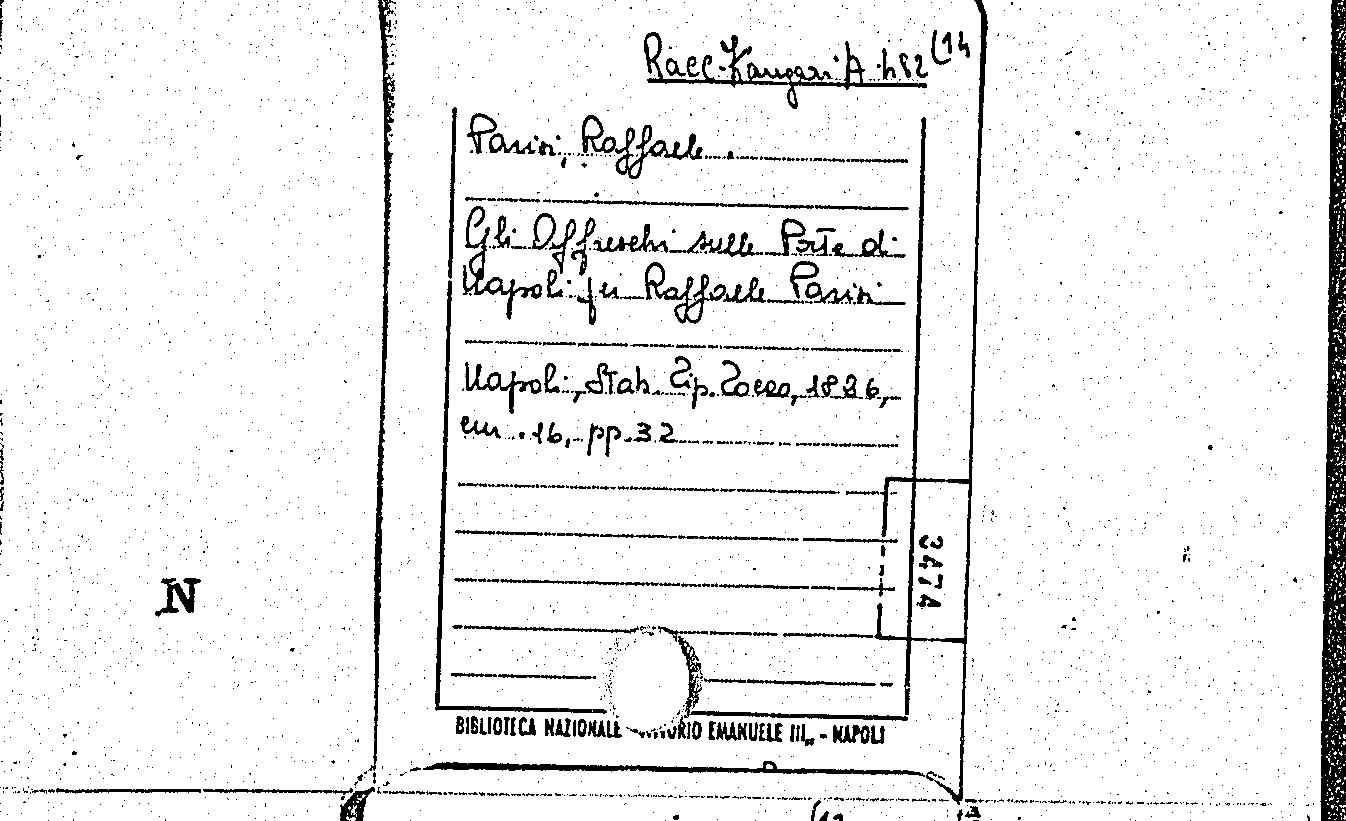 Racc. Zangari A 482 (14
Parisi, Raffaele.
Gli Affreschi sulle Porte di
Napoli per Raffaele Parisi
Napoli, Stab. Tip. Tocco, 1896,
cm. 16, pp. 32
3474
N
BIBLIOTECA NAZIONALE EMANUELE III„ - NAPOLI